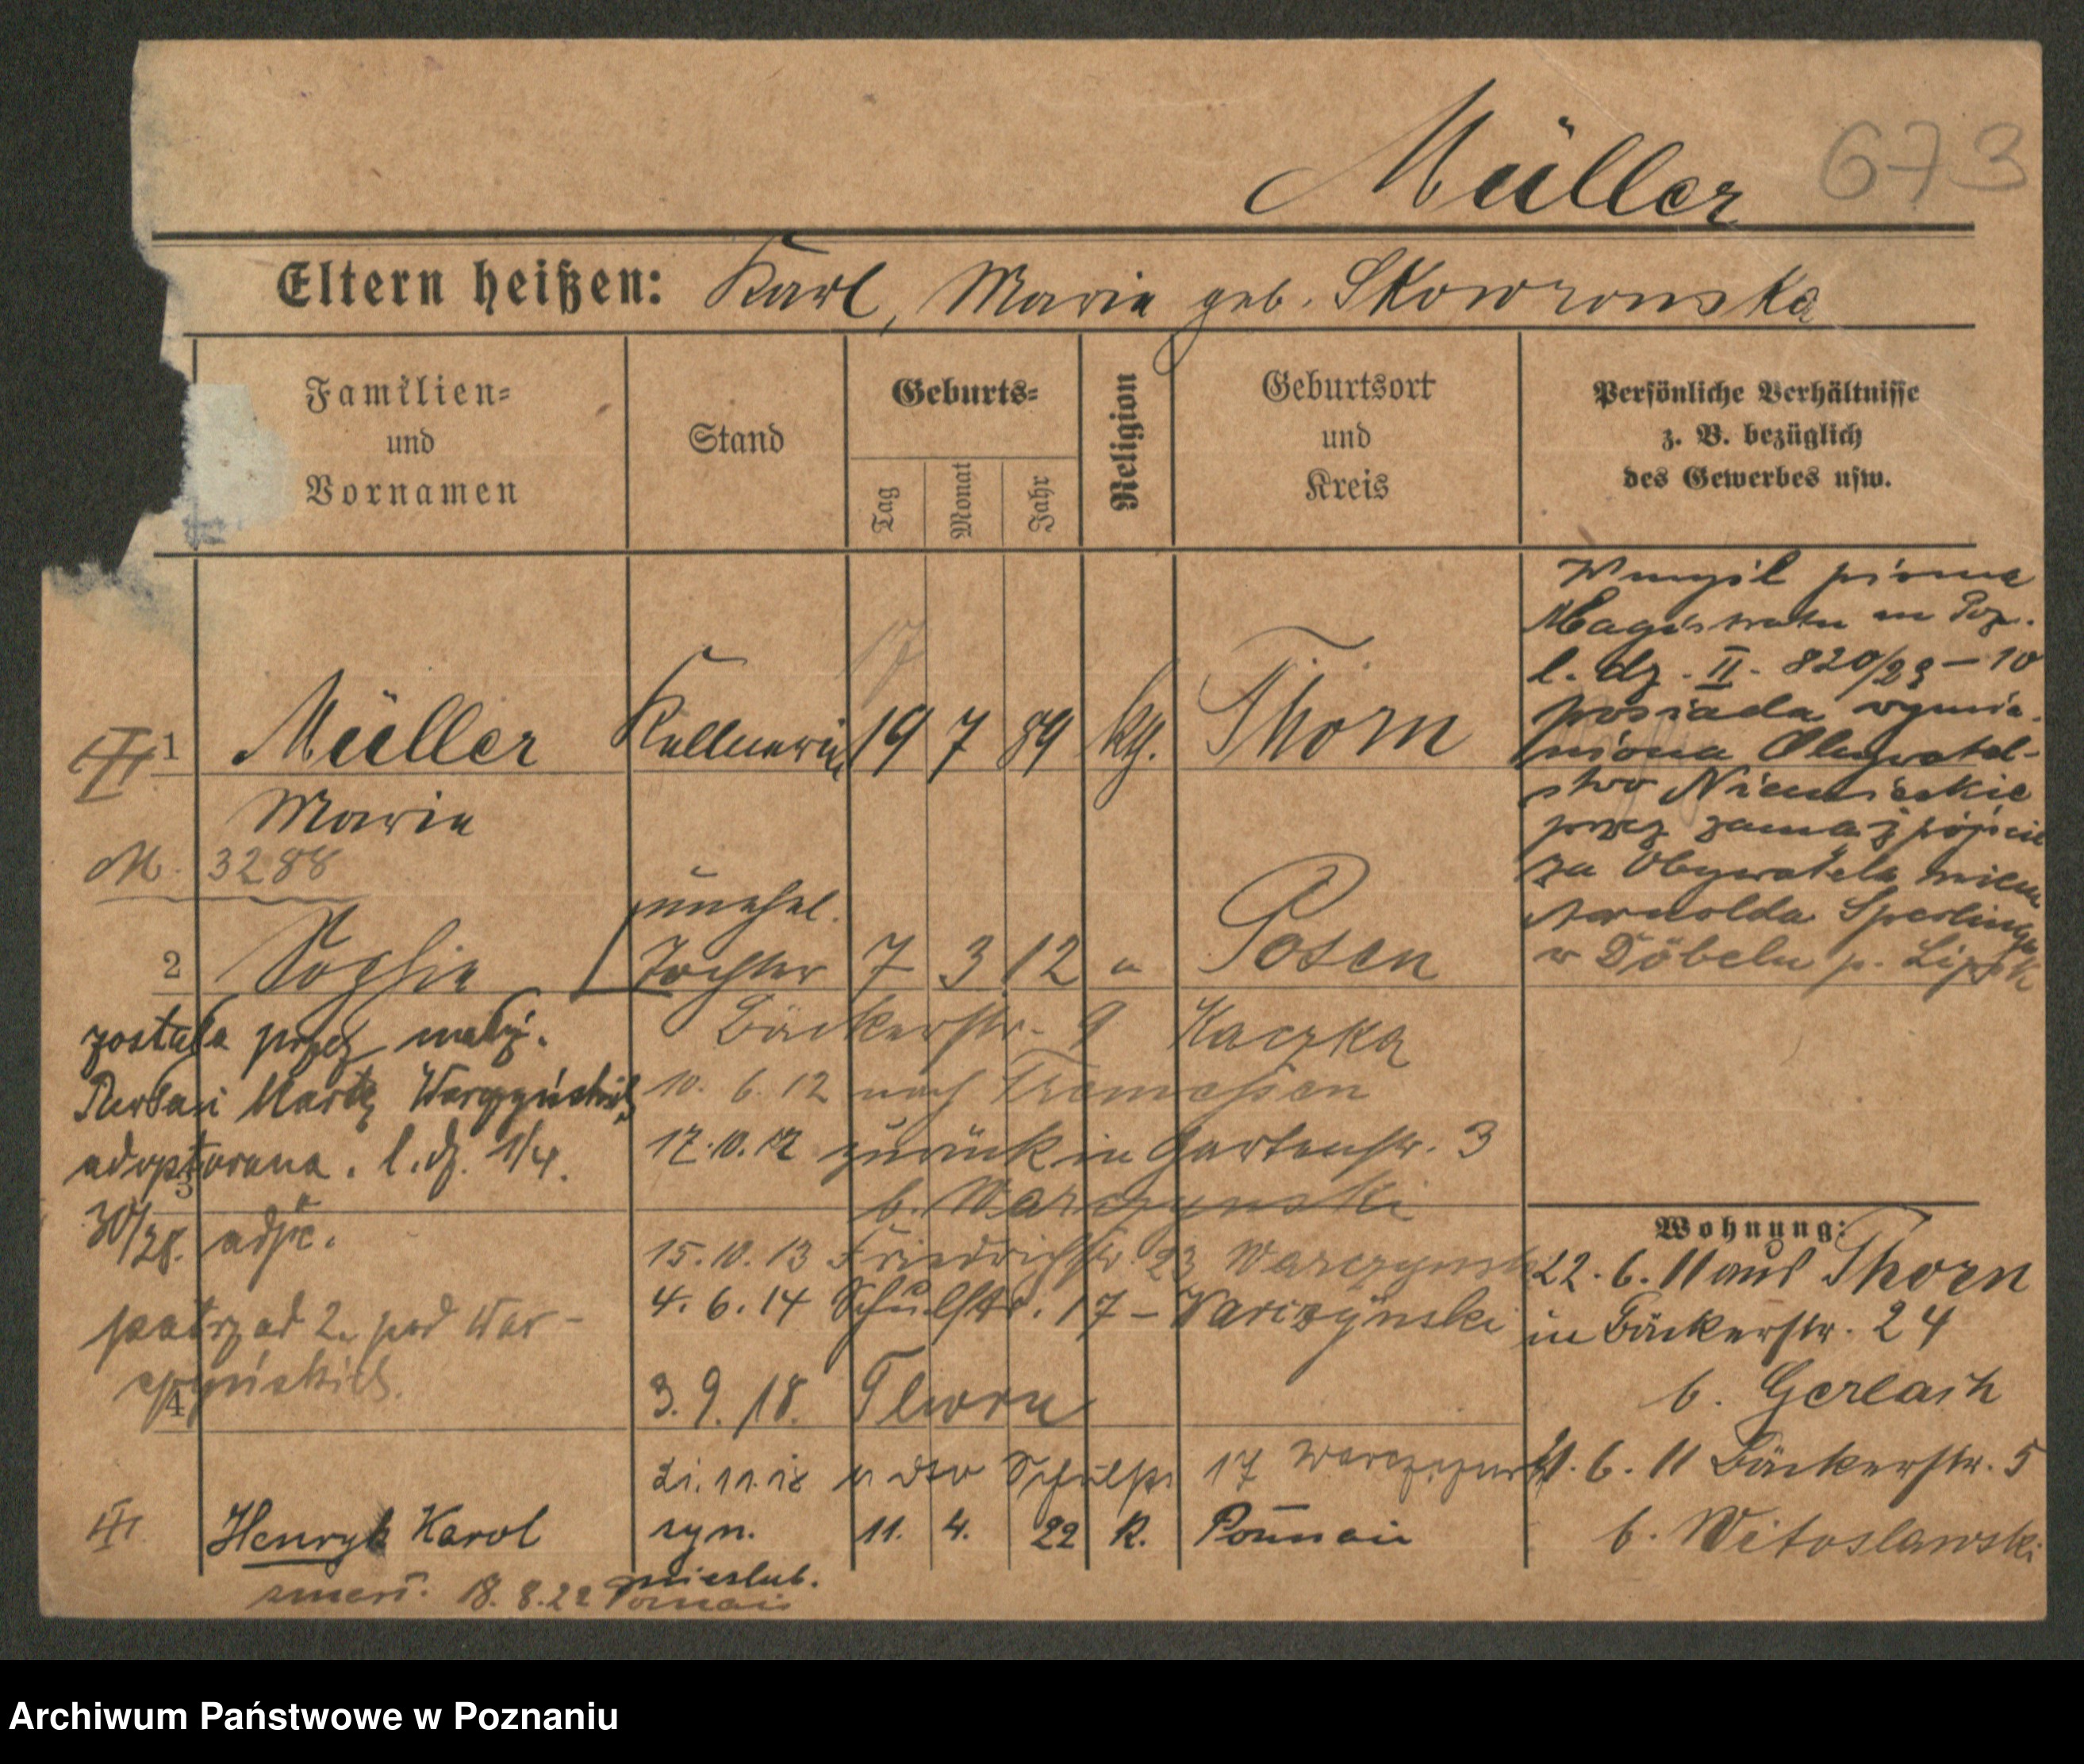 Müller 673
Eltern heißen: Karl, Maria geb. Skowronska
Familien=
und
Vornamen
Stand
Geburts=
Tag
Monat
Jahr
Religion
Geburtsort
und
Kreis
Persönliche Verhältnisse
z. B. bezüglich
des Gewerbes usw.
17
1 Müller Kellnerin 19 7 89 kth. Thorn
Maria
M. 3288
unehel.
2 Sophie Tochter 7 3 12 " Posen
została przez małż.
i Martę Warczyńskich
adoptowana. l.dz. 1/4.
3
30/28.
patrz ad 2. pod War-
czyńskich.
4
Bäckerstr. 9 Kaczka
10. 6. 12 nach Tremessen
17.10.12 zurück in Gartenstr. 3
b. Warczynski
15.10.13 Friedrichstr. 23 Warczynski
4. 6. 14 Schulstr. 17 - Warczynski
3. 9. 18. Thorn
21.11.18 Schulstr 17 Warczynski
Henryk Karol syn. 11. 4. 22 R. Poznań
nieślub.
zmarł. 18.8.22 Poznań
W myśl pisma
Magistratu m Poz.
l. dz. II. 820/29-10
posiada wymie-
niona Obywatel-
stwo Niemieckie
przez zamążpójście
za Obywatela niem.
Arnolda Sperlinga
w Döbeln p. Lipsk
Wohnung:
22. 6. 11 aus Thorn
in Bäckerstr. 24
b. Gerlach
6. 11 Bäckerstr. 5
b. Witoslawski
Archiwum Państwowe w Poznaniu